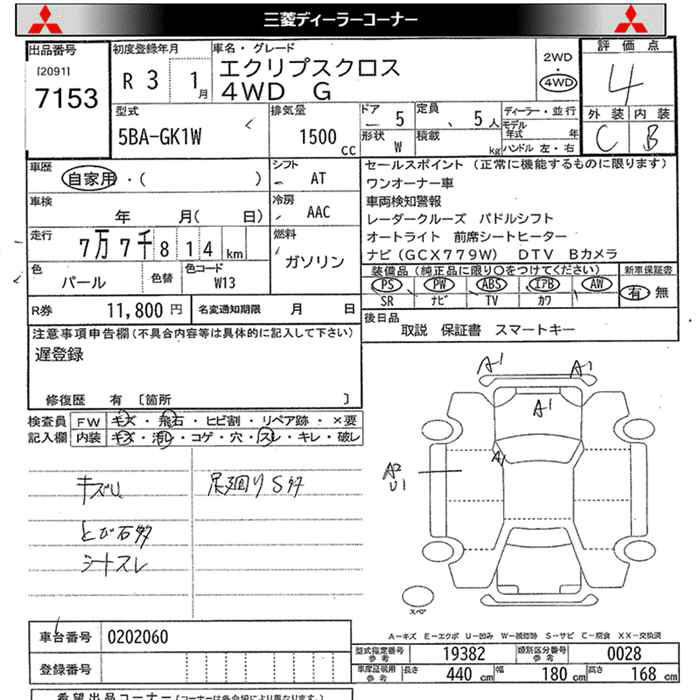 三菱ディーラーコーナー
出品番号 [2091] 7153
初度登録年月 R 3 1月
車名・グレード エクリプスクロス 4WD G
2WD ・ 4WD
評価点 4
外装 C 内装 B
型式 5BA-GK1W
排気量 1500 CC
ドア 5 定員 5人
形状 W 積載 kg
ディーラー・並行
モデル年式 年
ハンドル 左・右
車歴 自家用・( )
シフト AT
車検 年 月( 日)
冷房 AAC
走行 7万7千814km
燃料 ガソリン
色 パール 色替 色コード W13
R券 11,800 円 名変通知期限 月 日
セールスポイント (正常に機能するものに限ります)
ワンオーナー車
車両検知警報
レーダークルーズ パドルシフト
オートライト 前席シートヒーター
ナビ(GCX779W) DTV Bカメラ
装備品(純正品に限り〇をつけてください) 新車保証書
PS PW ABS エアB AW 有 無
SR ナビ TV カワ
後日品
取説 保証書 スマートキー
注意事項申告欄(不具合内容等は具体的に記入して下さい)
遅登録
修復歴 有 〔箇所 〕
検査員記入欄
FW キズ・飛石・ヒビ割・リペア跡・×要
内装 キズ・汚レ・コゲ・穴・スレ・キレ・破レ
キズU 足廻りSタ
とび石タ
シートスレ
A1 A1
A1
A1
A2
U1
スペア
A-キズ E-エクボ U-凹み W-補修跡 S-サビ C-腐食 XX-交換済
車台番号 0202060
登録番号
型式指定番号 参考 19382 類別区分番号 参考 0028
車庫証明用 参考 長さ 440 cm 幅 180 cm 高さ 168 cm
希望出品コーナー